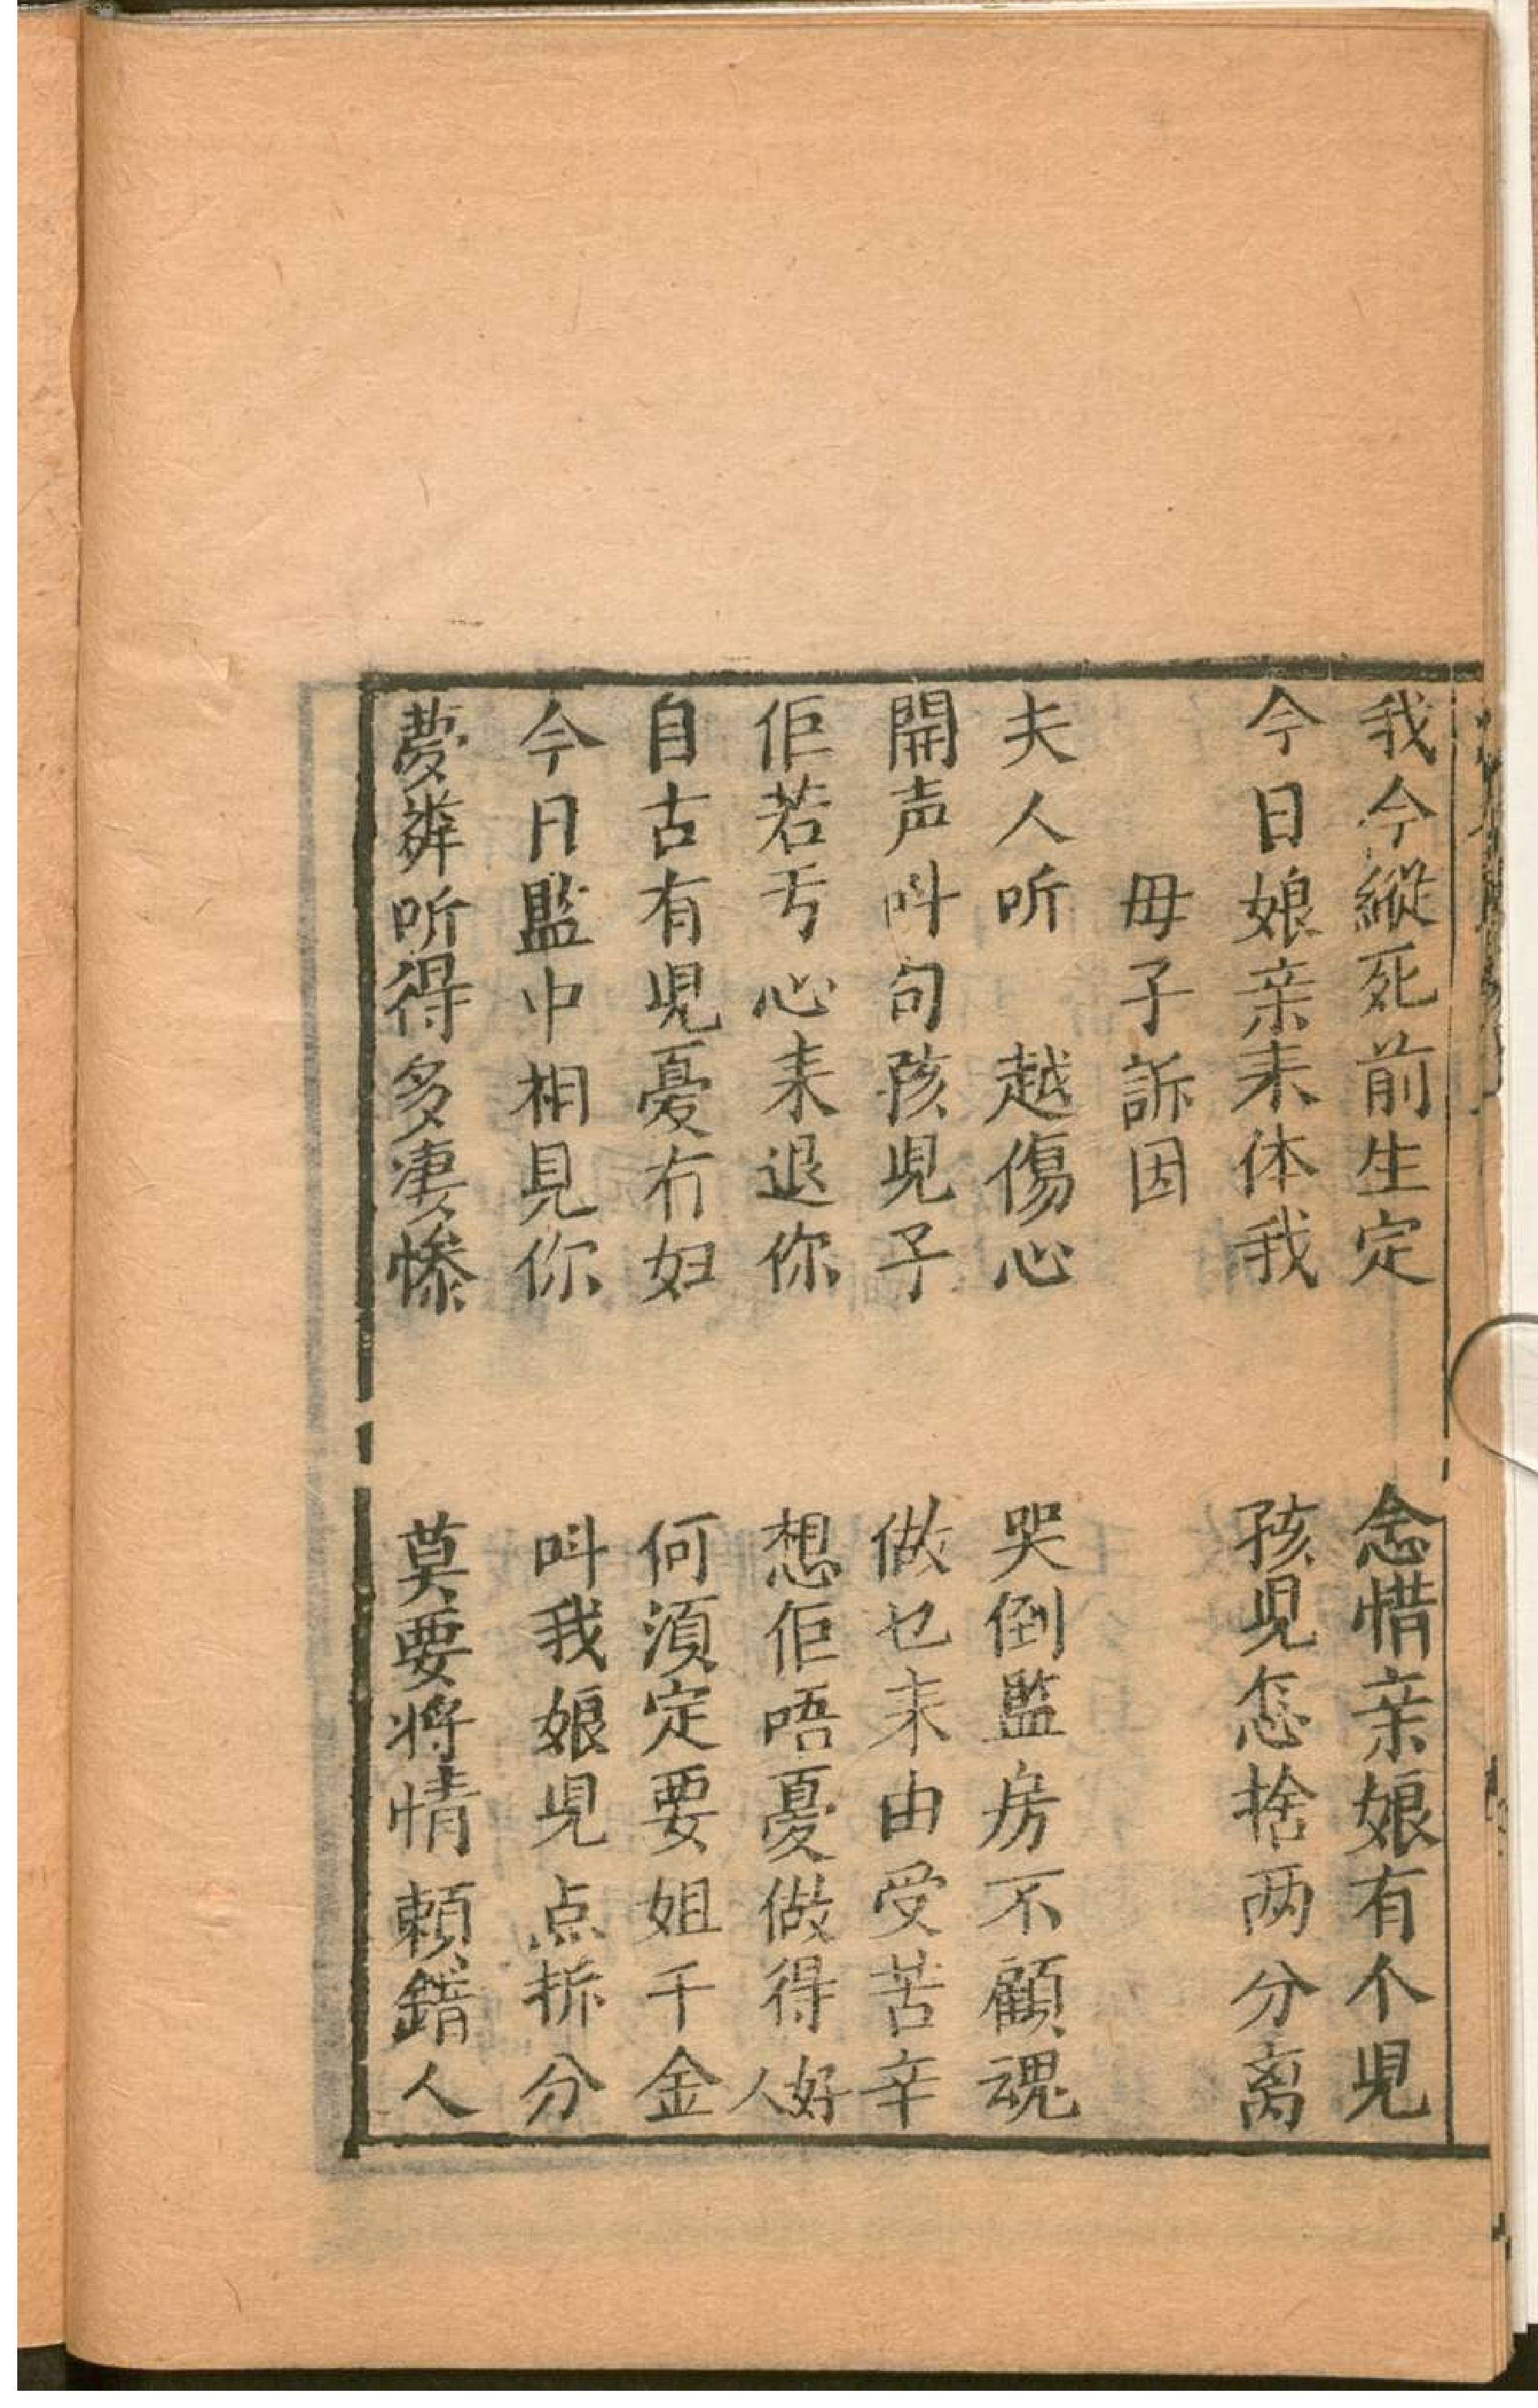 我今縱死前生定　念惜亲娘有个児
今日娘亲来体我　孩児怎捨两分离
母子訴因
夫人听　越傷心　哭倒監房不顧魂
開声呌句孩児子　做乜来由受苦辛
佢若亐心来退你　想佢唔憂做得好人
自古有児憂冇妇　何須定要姐千金
今日監中相見你　呌我娘児点拆分
夢粦听得多凄惨　莫要将情頼錯人